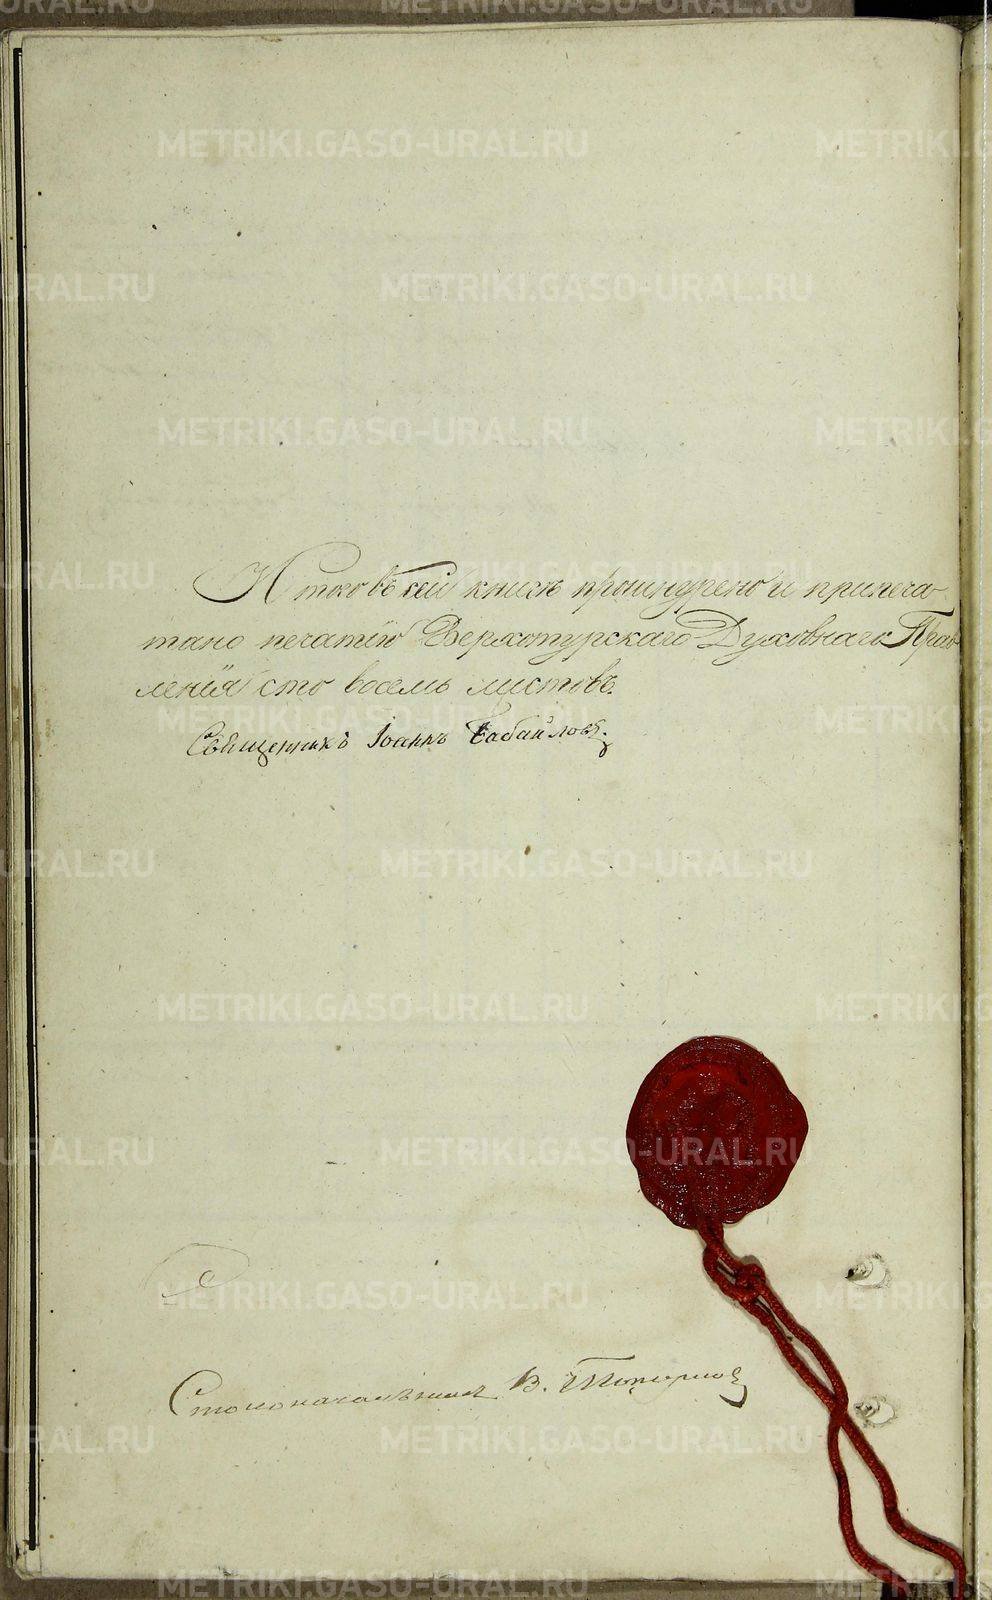 Итого въ сей книгѣ прошнурено и припеча-
тано печатію Верхотурскаго Духовнаго Прав-
ленія сто восемь листовъ.
Священникъ Іоаннъ Бабайловъ.
Столоначальникъ В.
METRIKI.GASO-URAL.RU